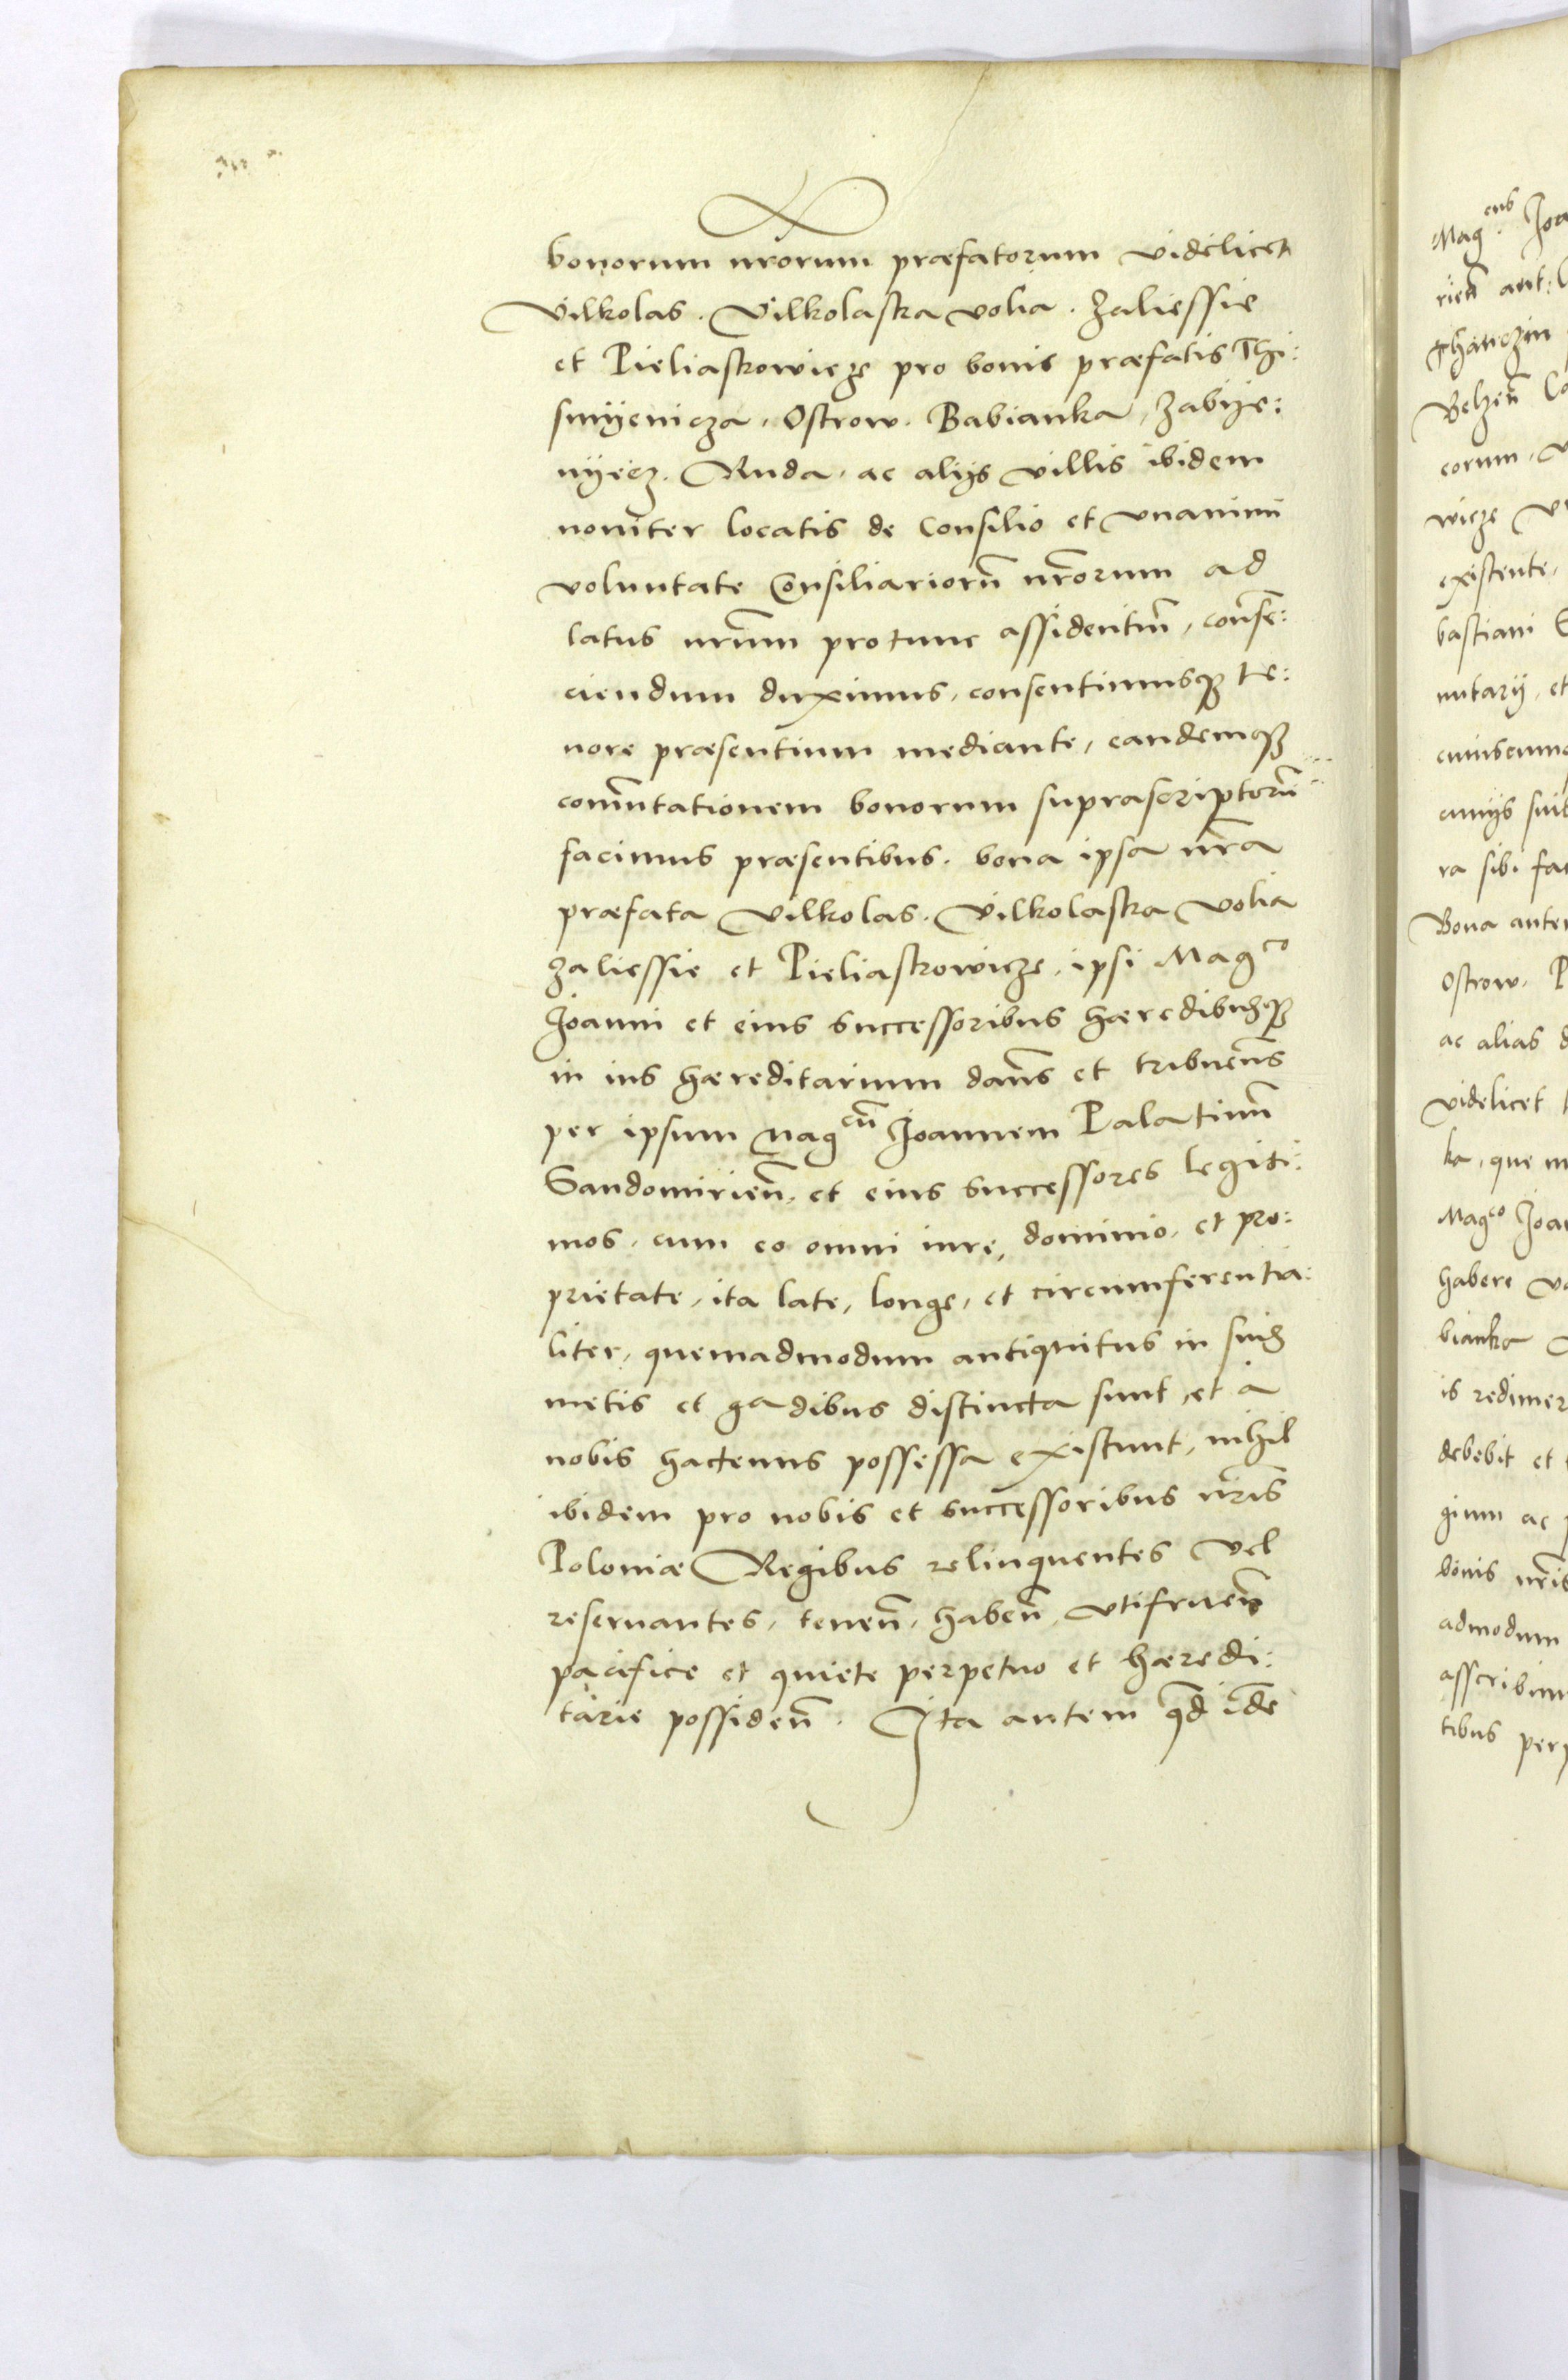 bonorum nrorum præfatorum videlicet
Vilkolas. Vilkolaska volia. Zaliessie
et Pieliaskowicze pro bonis præfatis Thi:
smÿenicza, Ostrow. Babianka, Zabÿe:
nÿecz. Ruda, ac alijs villis ibidem
noviter locatis de Consilio et unanimi
voluntate Consiliariorũ nr̃orum ad
latus nrũm pro tunc assidentiũ, conse:
ciendum duximus, consentimusqȝ te:
nore præsentium mediante, eandemqȝ
com̃utationem bonorum suprascriptorũ
facimus præsentibus. bona ipsa nr̃a
præfata Vilkolas. Vilkolaska Volia
Zaliessie et Pieliaskowicze, ipsi Magco
Joanni et eius successoribus hæredibusqȝ
in ius hæreditarium dañs et tribueñs
per ipsum Magcũ Joannem Palatinũ
Sandomirieñ. et eius successores legiti:
mos, cum eo omni iure, dominio, et pro:
prietate, ita late, longe, et circumferentia:
liter, quemadmodum antiquitus in suis
metis et gadibus distincta sunt, et à
nobis hactenus possessa existunt, nihil
ibidem pro nobis et successoribus nr̃is
Poloniæ Regibus relinquentes vel
reservantes, teneñ, habeñ, utifrueñ
pacifice et quiete perpetuo et hæredi:
tarie possideñ. Ita autem qd̃ ide

Magcus Joa
rieñ aut:
thanczin
Belzeñ Ca
corum, v
wicze
existente,
bastiani
nutarij, et
cuiuscunq
ra sibi fac
Bona autem
Ostrow. P
ac alias d
videlicet
ka, que
Magco Joa
habere
bianka
is redimer
debebit et
gium ac
bonis nr̃is
admodum
asscribim
tibus perp